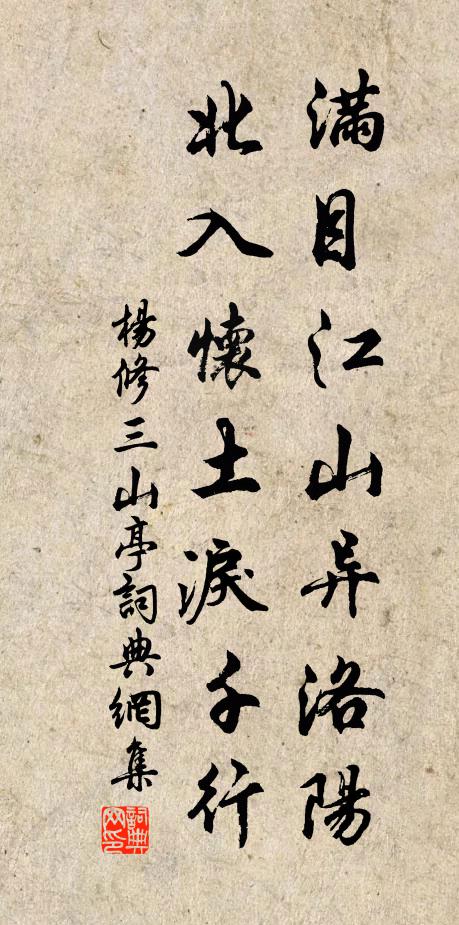 滿目江山异洛陽
北入懷土淚千行
楊修三山亭詞典網集
詞典网印